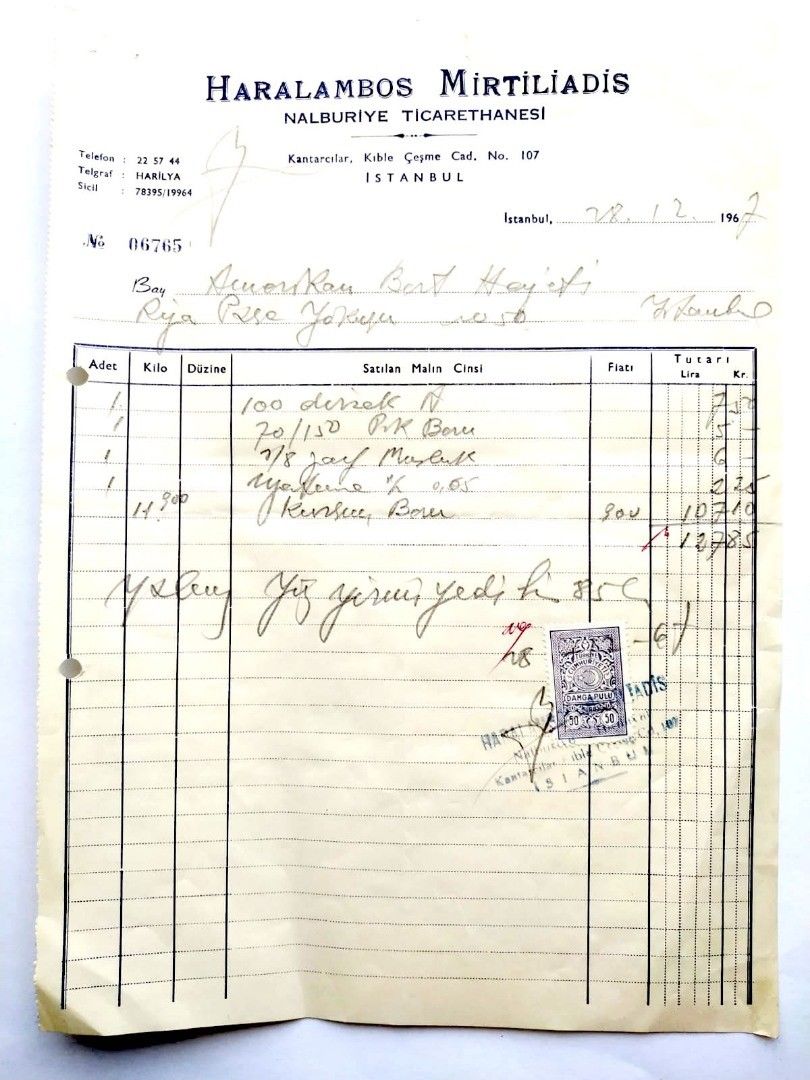 HARALAMBOS MİRTİLİADİS
NALBURİYE TİCARETHANESİ
Telefon : 22 57 44
Telgraf : HARİLYA
Sicil : 78395/19964
Kantarcılar, Kıble Çeşme Cad. No. 107
İSTANBUL
İstanbul, 28.12.1967
№ 06765
Bay Amerikan Bort Heyeti
Rıza Paşa Yokuşu No 50 İstanbul
Adet Kilo Düzine Satılan Malın Cinsi Fiatı Tutarı
Lira Kr.
1 100 dirsek 7 50
1 70/150 Pik Boru 5 -
1 Musluk 6 -
1 0,05 2 25
11.900 Kurşun Boru 900 107 10
127 85
Yalnız Yüz yirmi yedi 85
28 -67
TÜRKİYE CUMHURİYETİ
DAMGA PULU
50 50
Kantarcılar Kıble Çeşme Cd. 107
İSTANBUL